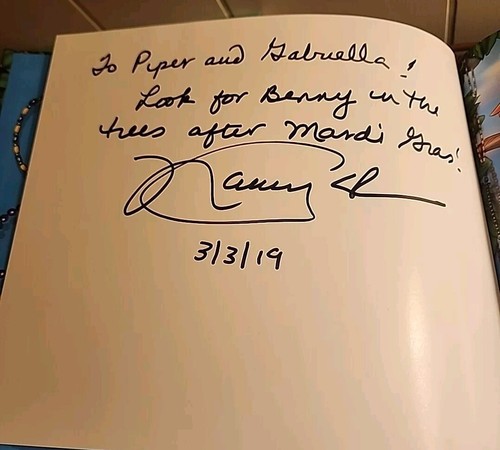 To Piper and Gabriella!
Look for Benny in the
trees after Mardi Gras!
3/3/19